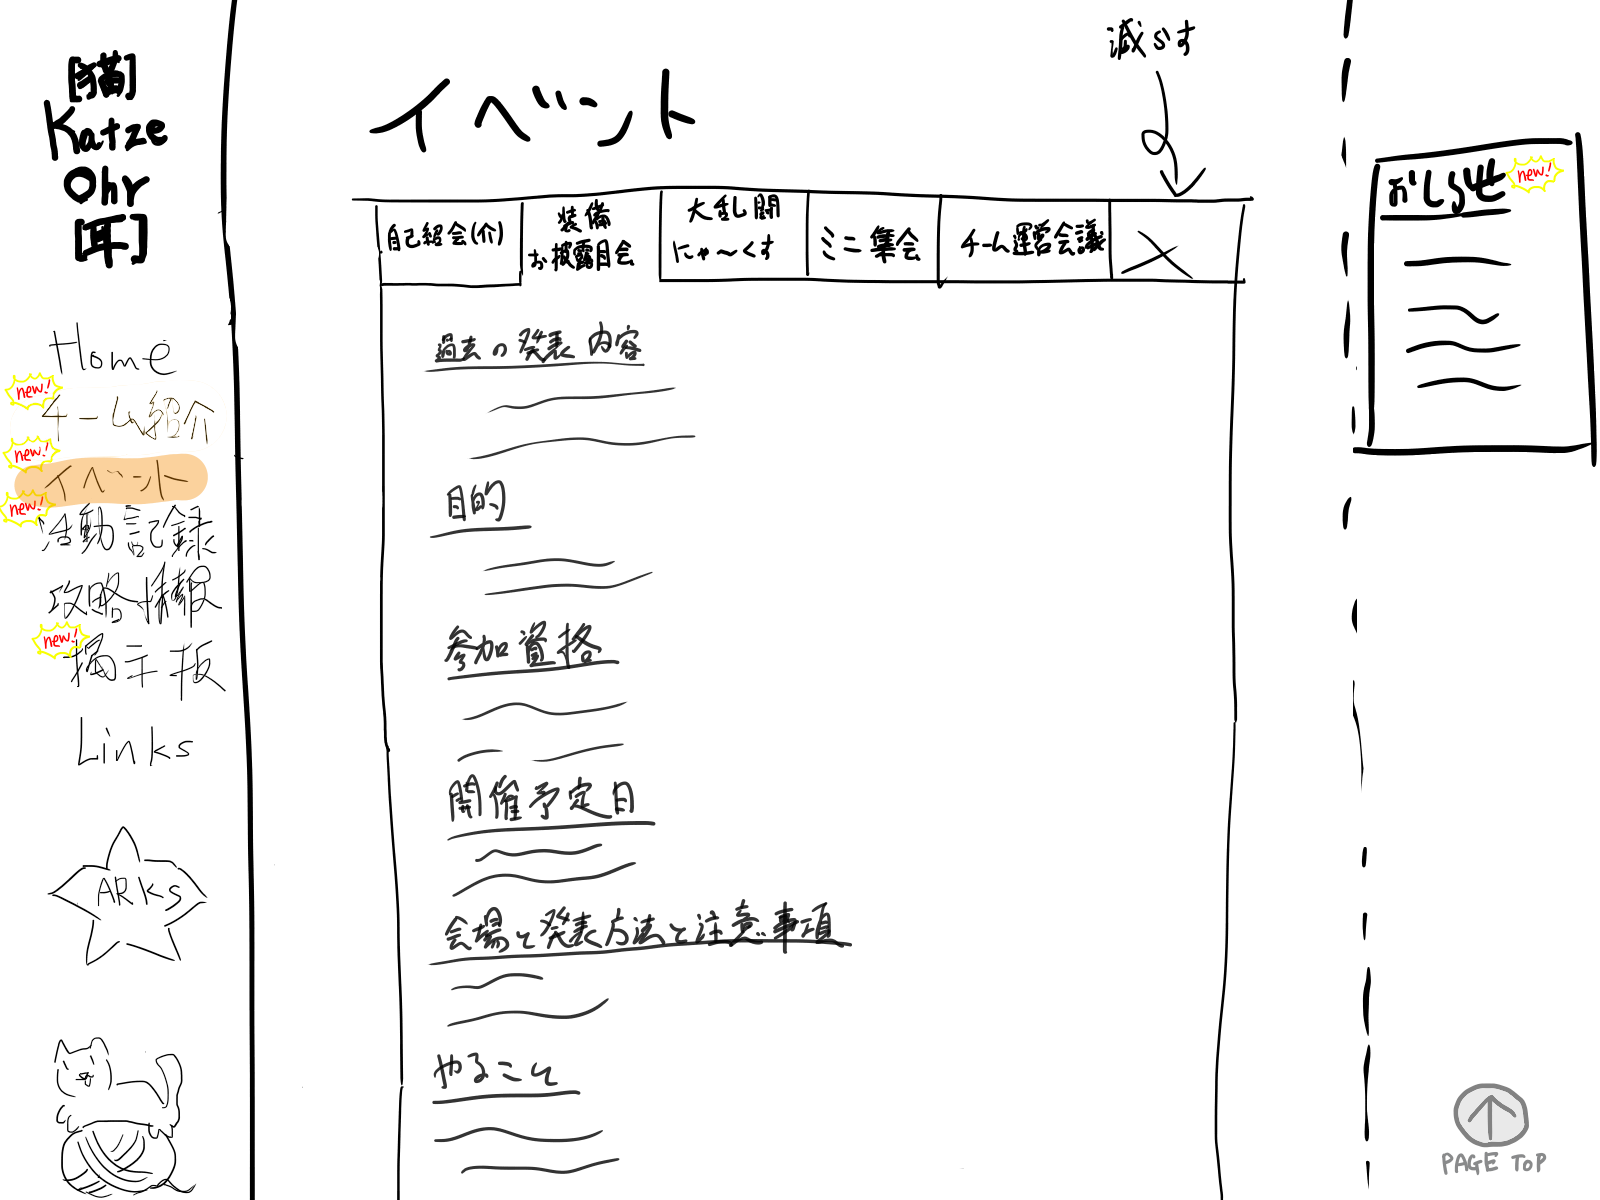 [猫]
Katze
Ohr
[耳]
Home
new!
チーム紹介
new!
イベント
new!
活動記録
攻略情報
new!
掲示板
Links
ARKS
イベント
減らす
自己紹会(介)
装備
お披露目会
大乱闘
にゃ〜くす
ミニ集会
チーム運営会議
過去の発表内容
目的
参加資格
開催予定日
会場と発表方法と注意事項
やること
おしらせ
new!
PAGE TOP